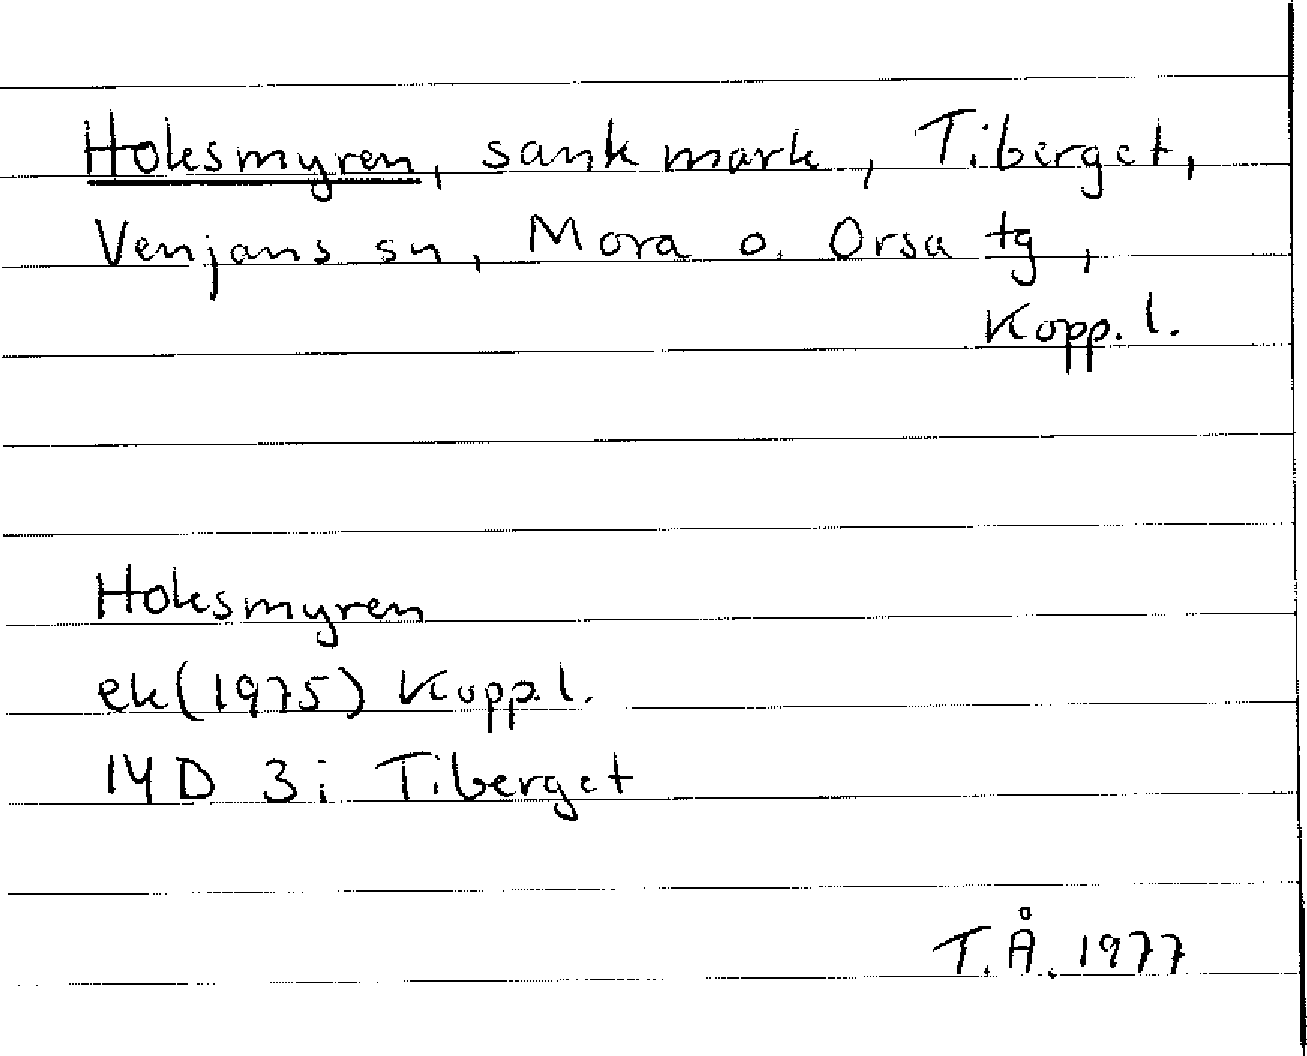 Hoksmyren, sank mark, Tiberget,
Venjans sn, Mora o. Orsa tg,
Kopp. l.
Hoksmyren
ek (1975) Kopp. l.
14D 3i Tiberget
T.Å. 1977